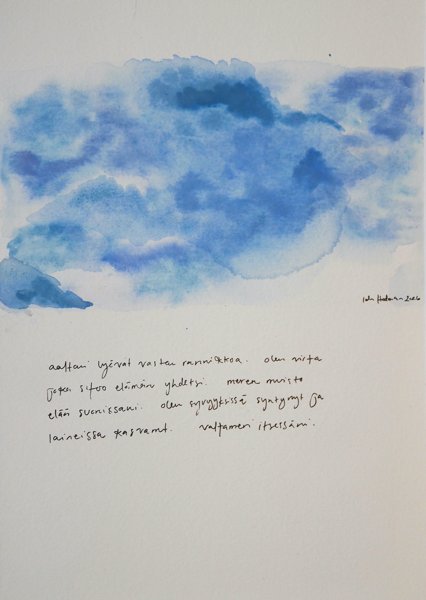 2026
aaltoni lyövät vasten rannikkoa. olen virta
joka sitoo elämän yhdeksi. meren muisto
elää suonissani. olen syvyyksissä syntynyt ja
laineissa kasvanut. valtameri itsessäni.